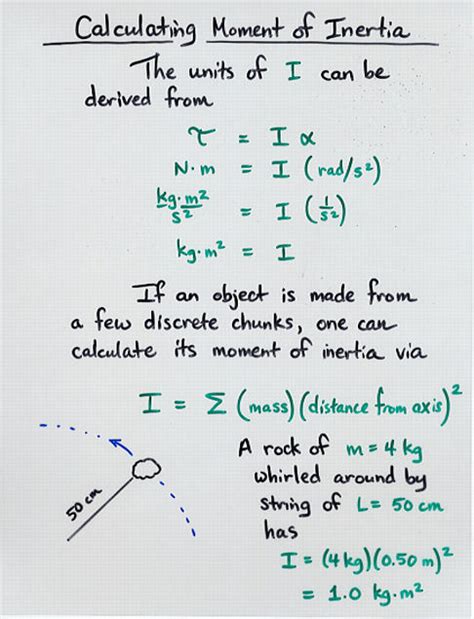 Calculating Moment of Inertia
The units of I can be
derived from
τ = I α
N·m = I (rad/s²)
kg·m²/s² = I (1/s²)
kg·m² = I
If an object is made from
a few discrete chunks, one can
calculate its moment of inertia via
I = Σ (mass)(distance from axis)²
A rock of m = 4 kg
whirled around by
string of L = 50 cm
has
I = (4 kg)(0.50 m)²
= 1.0 kg·m²
50 cm